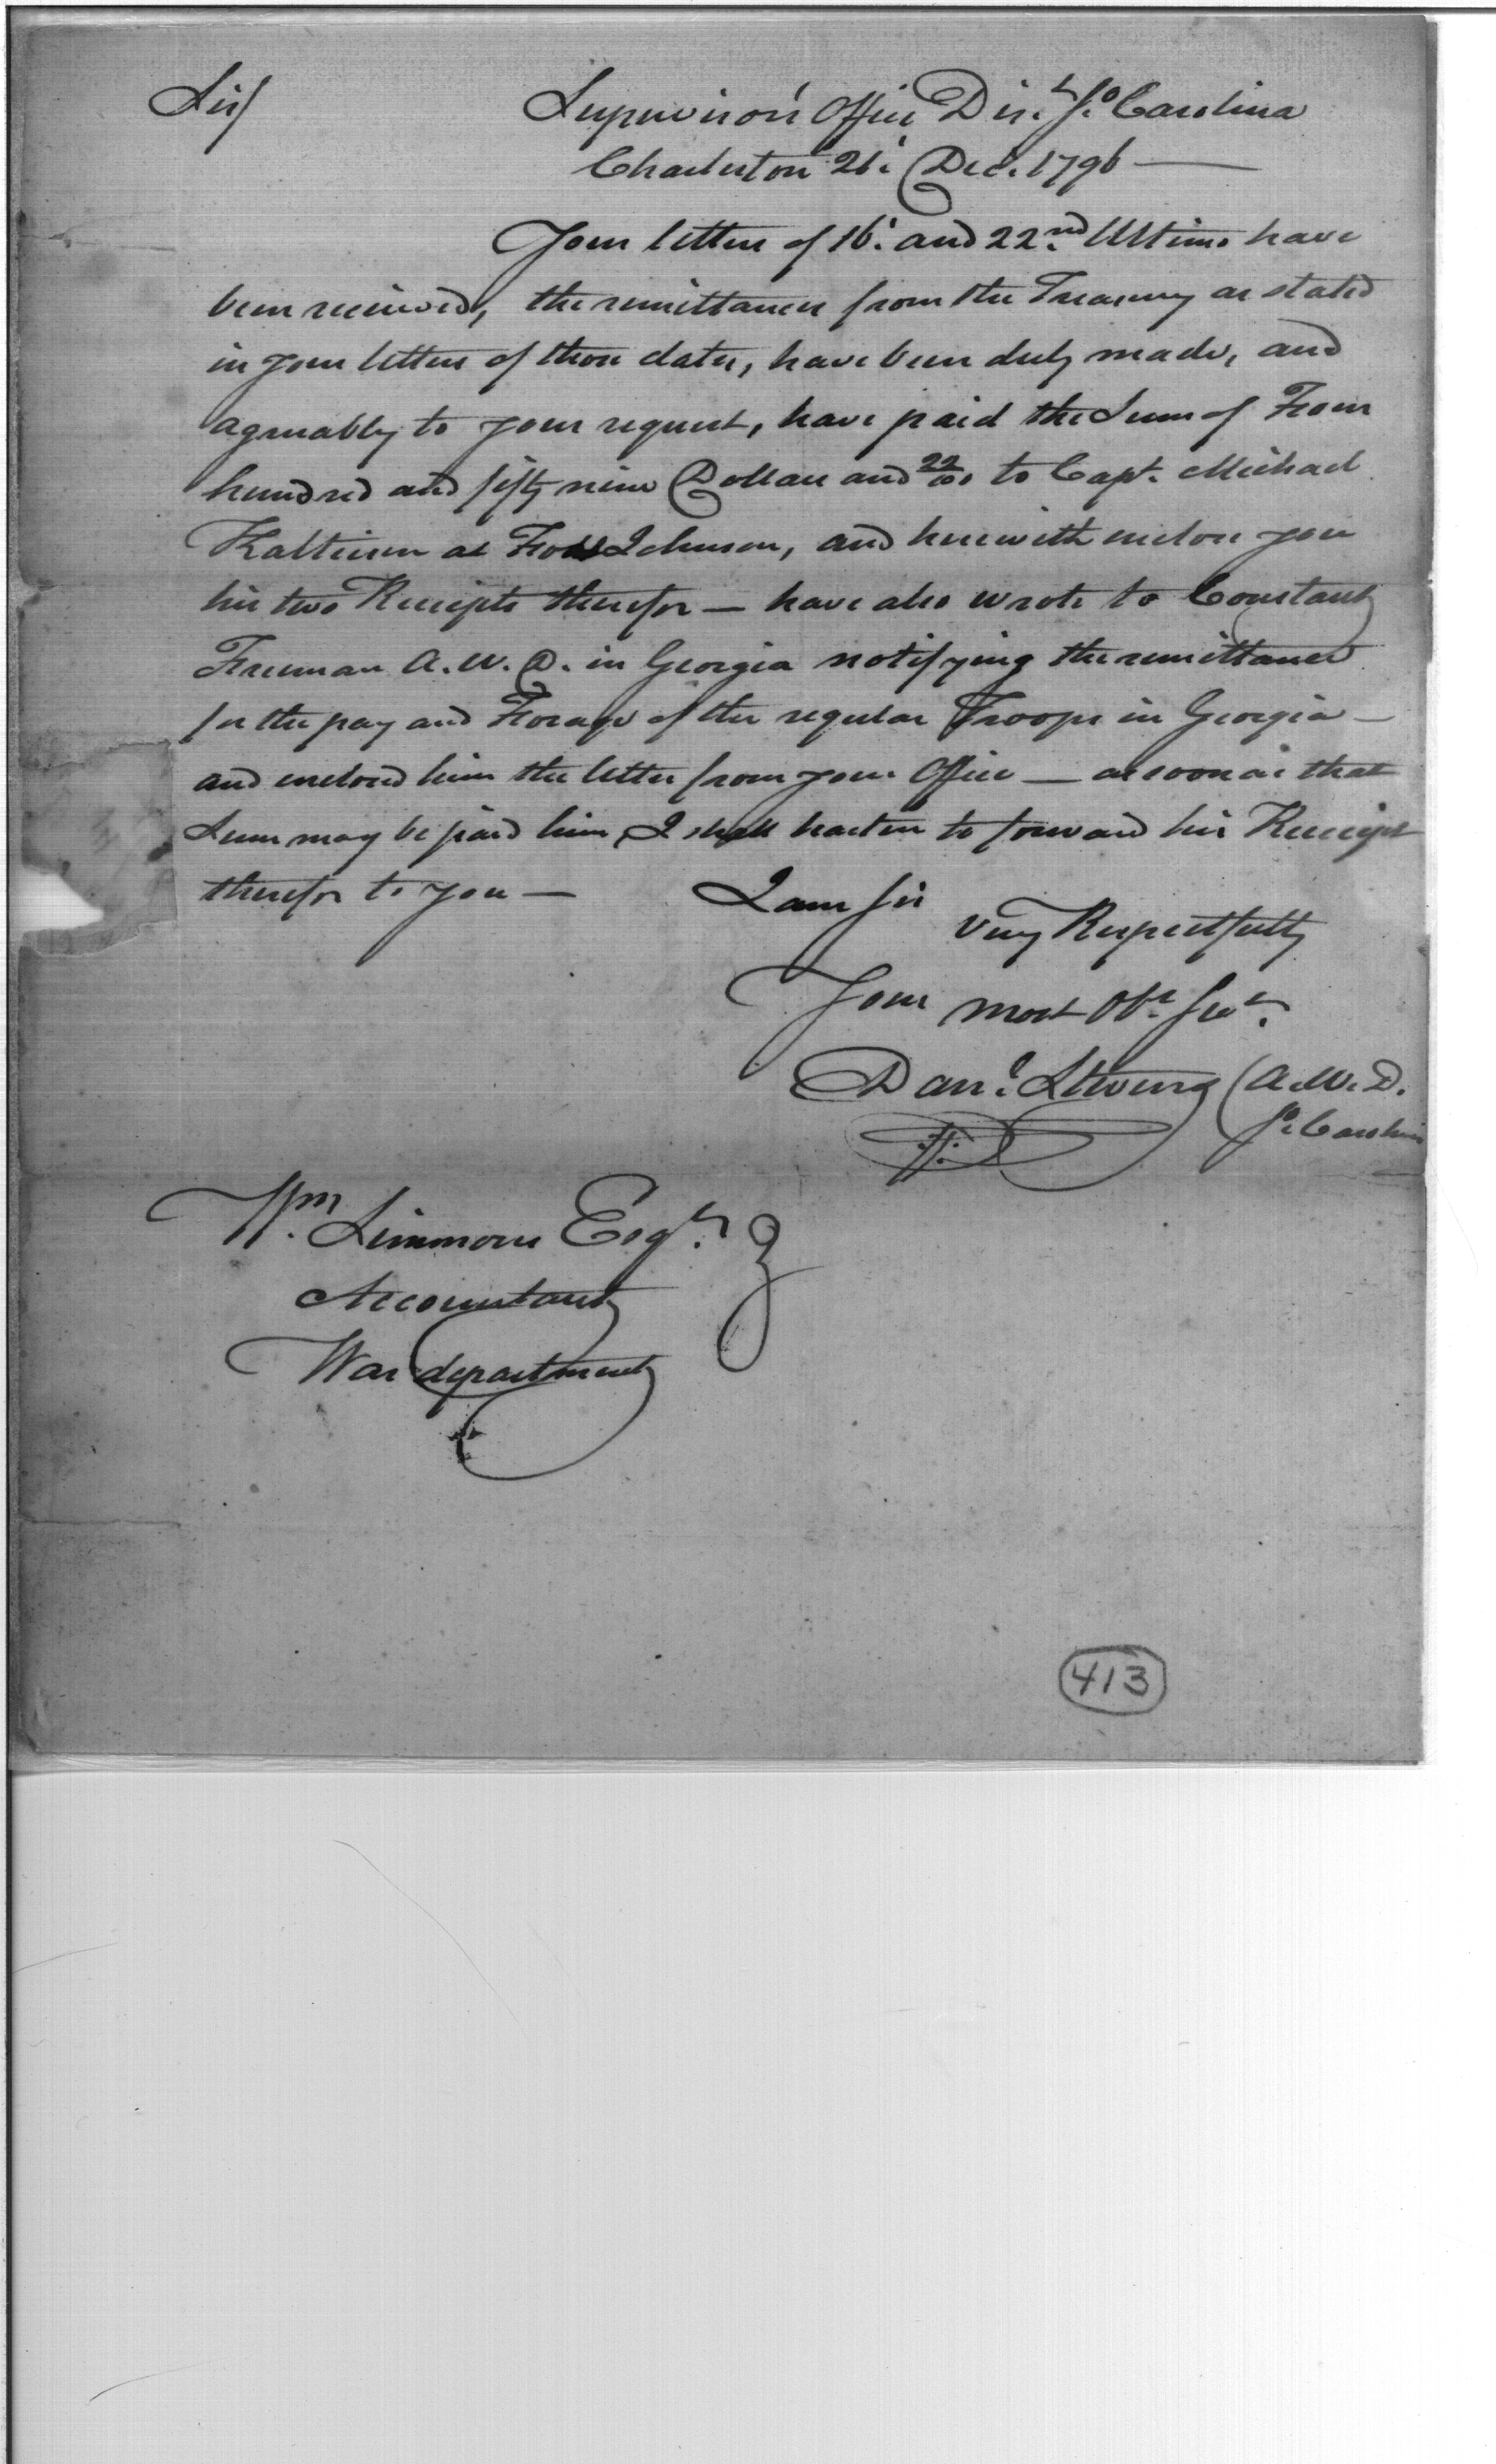 Sir/
Supervisor's Office Dist. So. Carolina
Charleston 26. Dec. 1796 —
Your letters of 16. and 22nd. Ultimo have
been received, the remittances from the Treasury as stated
in your letters of those dates, have been duly made, and
agreeably to your request, have paid the Sum of Four
hundred and fifty nine Dollars and 22/100 to Capt. Michael
Kalteisen at Fort Johnson, and herewith enclose you
his two Receipts therefor — have also wrote to Constant
Freeman A. W. D. in Georgia notifying the remittance
for the pay and Forage of the regular Troops in Georgia —
and enclosed him the letter from your Office — as soon as that
Sum may be paid him, I shall hasten to forward his Receipt
therefor to you —
I am Sir
Very Respectfully
Your most Obt. Servt.
Danl. Stevens (A. W. D.
So. Carolina
Wm. Simmons Esqr.
Accountant
War department
413